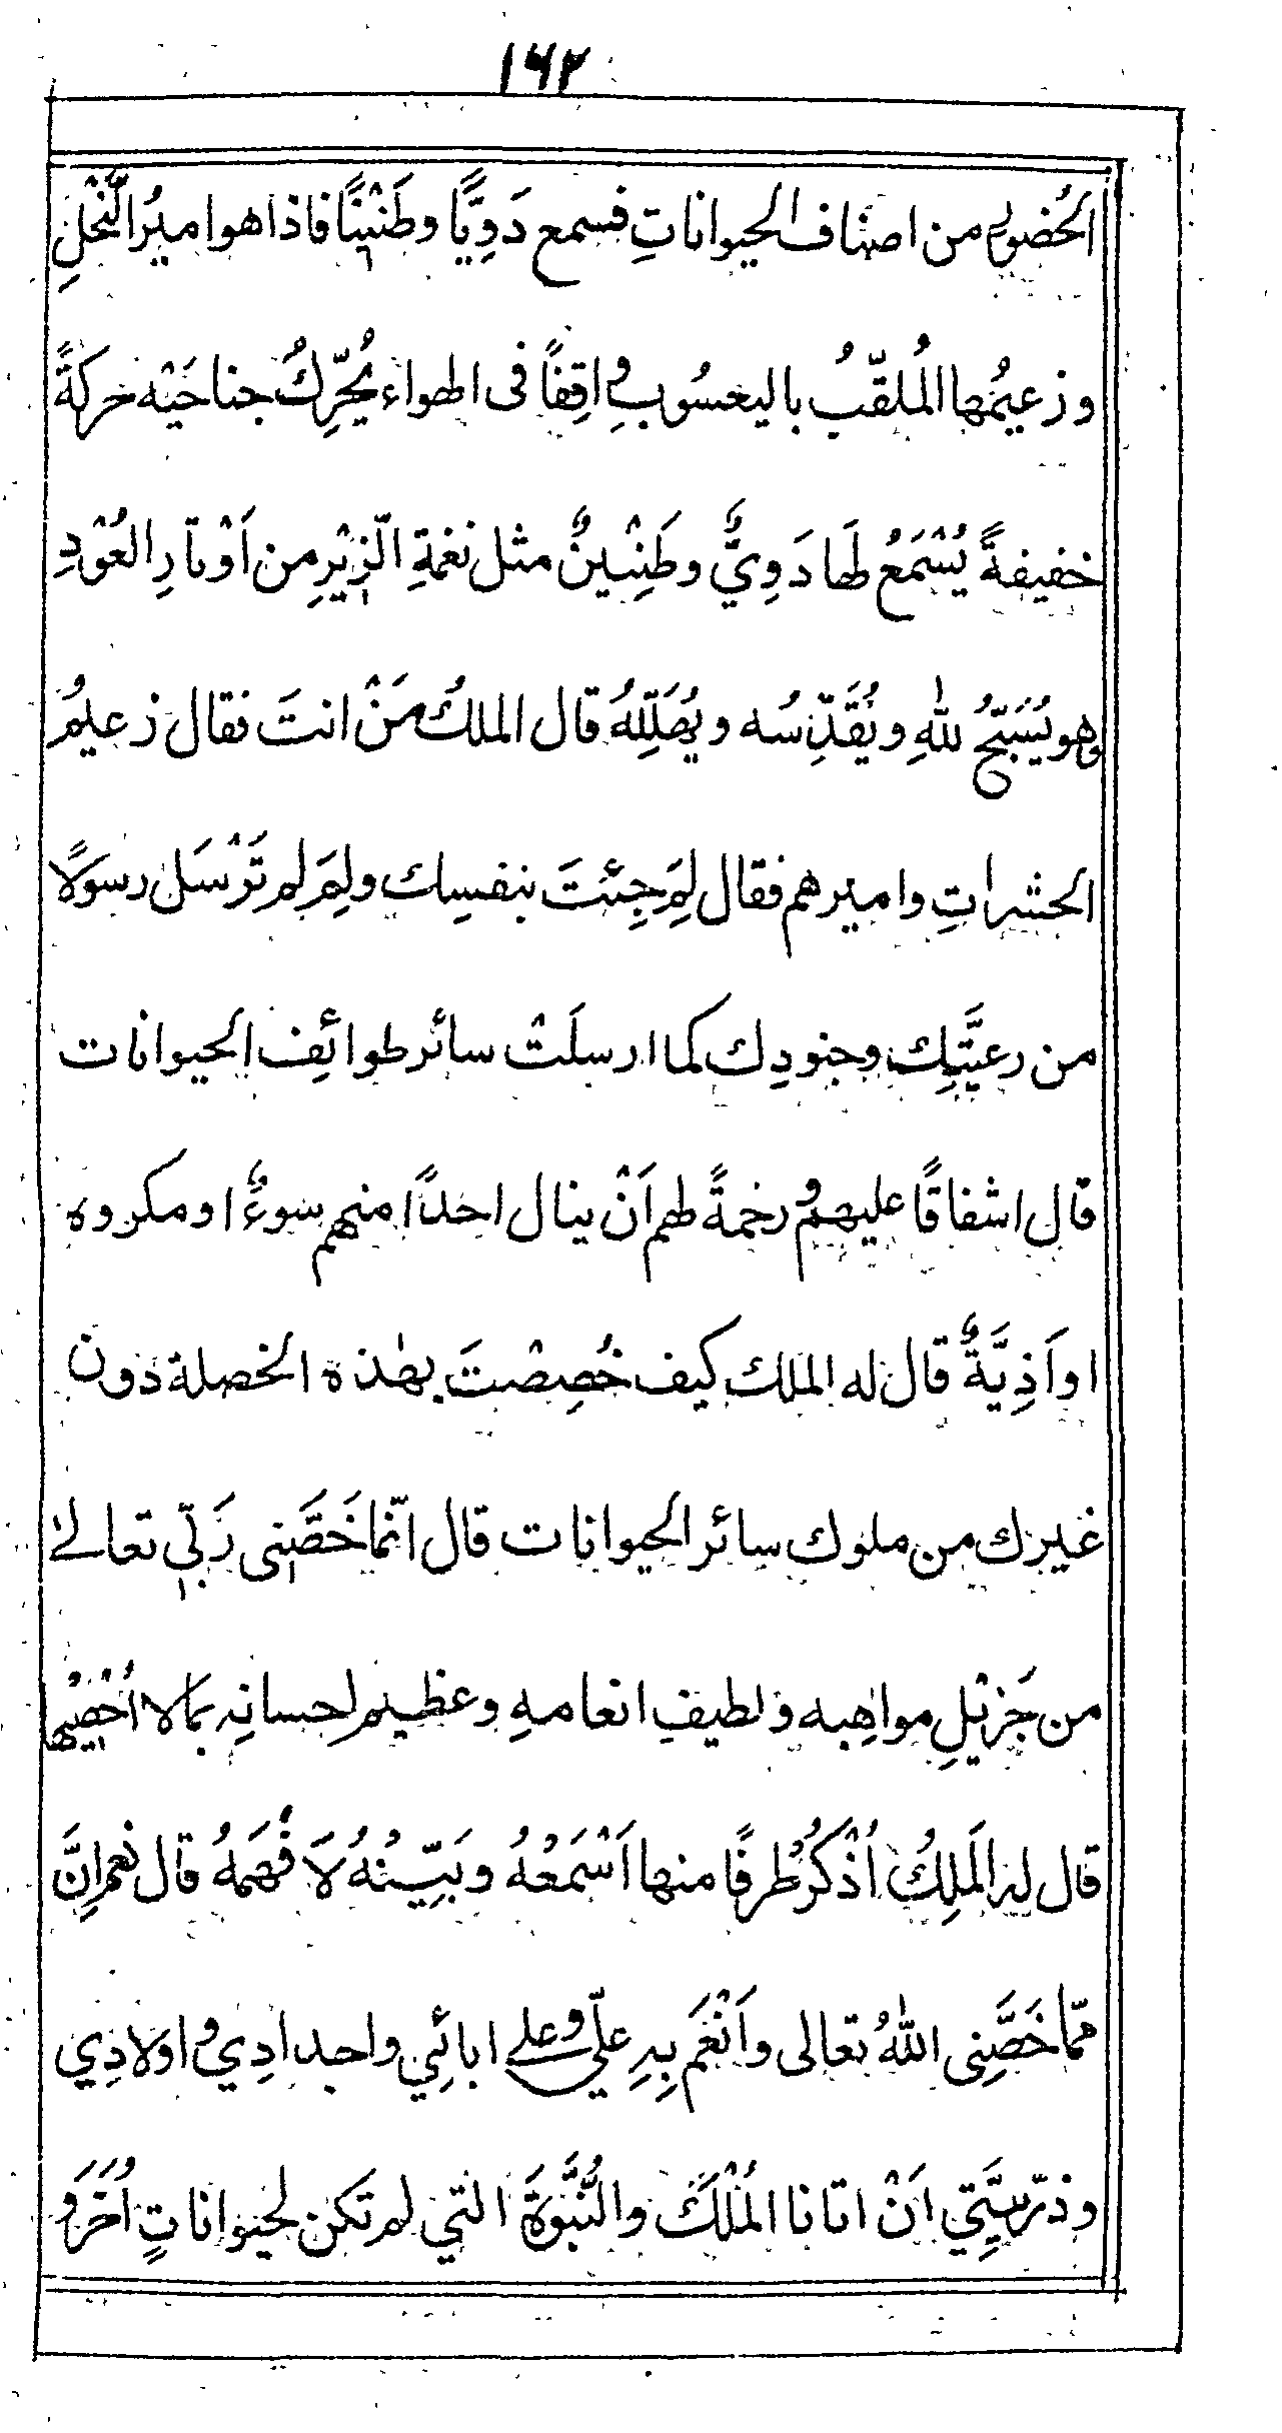 ١٦٢
الحُضورِ من اصناف الحيواناتِ فسمع دَوِيًّا وطَنْيْنًا فاذا هوا ميرُ النَّحْلِ
وزعيمُها المُلقّبُ باليعسُوبِ وَاقِفًا فى الهواء يُحَرِّكُ جناحَيْه حركةً
خفيفةً يُسْمَعُ لها دَوِيٌّ وطَنِيْنٌ مثل نغمةِ الزِّيْرِ من اَوْتارِ العُوْدِ
وهو يُسَبِّحُ للهِ ويُقَدِّسُه ويُهَلِّلهُ قال الملكُ مَنْ انتَ فقال زعيمُ
الحشراتِ واميرهم فقال لِمَ جِئتَ بنفسِك ولِمَ لم تَرْسَل رسوَلًا
من رعيَّتِك وجنودِك كما ارسلَتْ سائر طوائِف الحيوانات
قال اشفاقًا عليهم ورحمةً لهم اَنْ ينال احدًا منهم سُوءٌ او مكروه
او اَذِيَّةٌ قال له الملك كيف خُصِصْتَ بهٰذه الخصلة دون
غيرك من ملوك سائر الحيوانات قال انّما خَصَّنِى رَبِّى تعالےٰ
من جَزيْلِ مواهِبه ولطيفِ انعامهِ وعظيم اِحسانِه بمالا اُحْصِيْها
قال له المَلِكُ اُذْكُرْ طرفًا منها اَسْمَعْهُ وبَيِّنْهُ لَا فْهَمَهُ قال نعم اِنَّ
ممّا خَصَّنِى اللّٰهُ تعالى واَنْعَم بِهِ علَّى وعلےٰ ابائِي واجدادِي واولادِي
وذرّيَّتِي اَنْ اتانا المُلْكَ والنُّبُّوةَ التي لم تَكن لحيواناتٍ اُخَرَ و